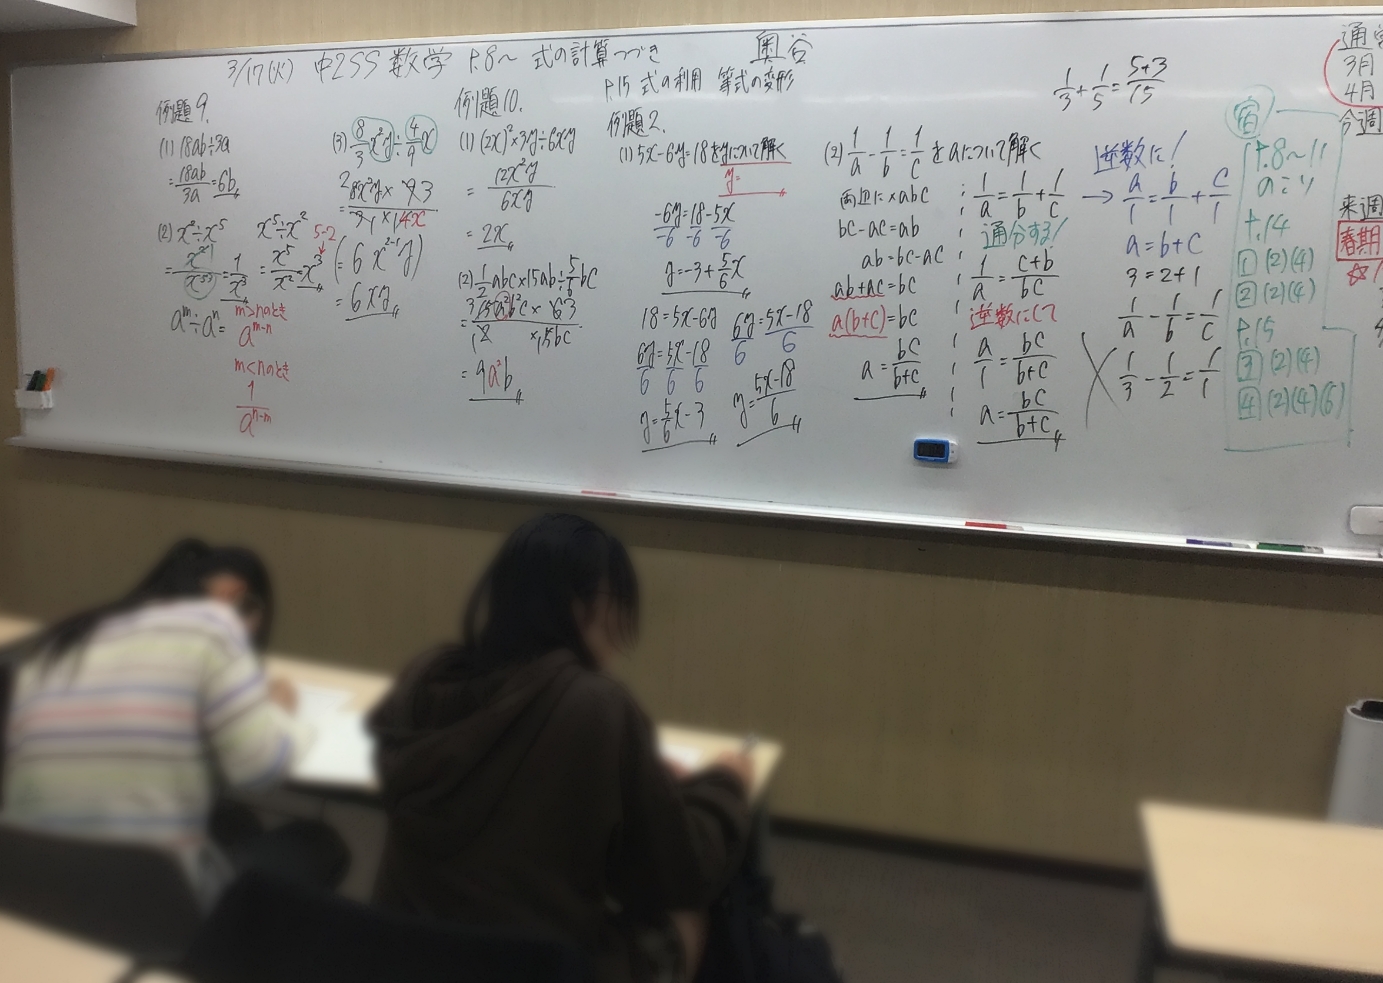 3/17(火) 中2SS 数学 P.8～ 式の計算つづき 奥谷
P.15 式の利用 等式の変形
例題9.
(1) 18ab÷3a
= 18ab/3a = 6b
(2) x²÷x⁵
x⁵÷x²
= x⁵/x² = x³
5-2
aᵐ÷aⁿ=
m>nのとき
aᵐ⁻ⁿ
m<nのとき
1/aⁿ⁻ᵐ
(3) 8/3x²y÷4/9x
(= 6x²⁻¹y)
= 6xy
例題10.
(1) (2x)²×3y÷6xy
= 12x²y/6xy
= 2x
(2) 1/2abc×15ab÷5/6bc
= 9a²b
例題2.
(1) 5x-6y=18をyについて解く
y=
-6y/-6=18/-6-5x/-6
y=-3+5/6x
18=5x-6y
6y/6=5x/6-18/6
y=5/6x-3
6y/6=5x-18/6
y=5x-18/6
(2) 1/a-1/b=1/cをaについて解く
両辺に×abc
bc-ac=ab
ab=bc-ac
ab+ac=bc
a(b+c)=bc
a=bc/b+c
1/a=1/b+1/c
通分する!
1/a=c+b/bc
逆数にして
a/1=bc/b+c
a=bc/b+c
1/3+1/5=5+3/15
逆数に!
→a/1=b/1+c/1
a=b+c
3=2+1
1/a-1/b=1/c
1/3-1/2=1/1
宿
P.8～11
のこり
P.14
1 (2)(4)
2 (2)(4)
P.15
3 (2)(4)
4 (2)(4)(6)
3月
4月
今週
来週
春期